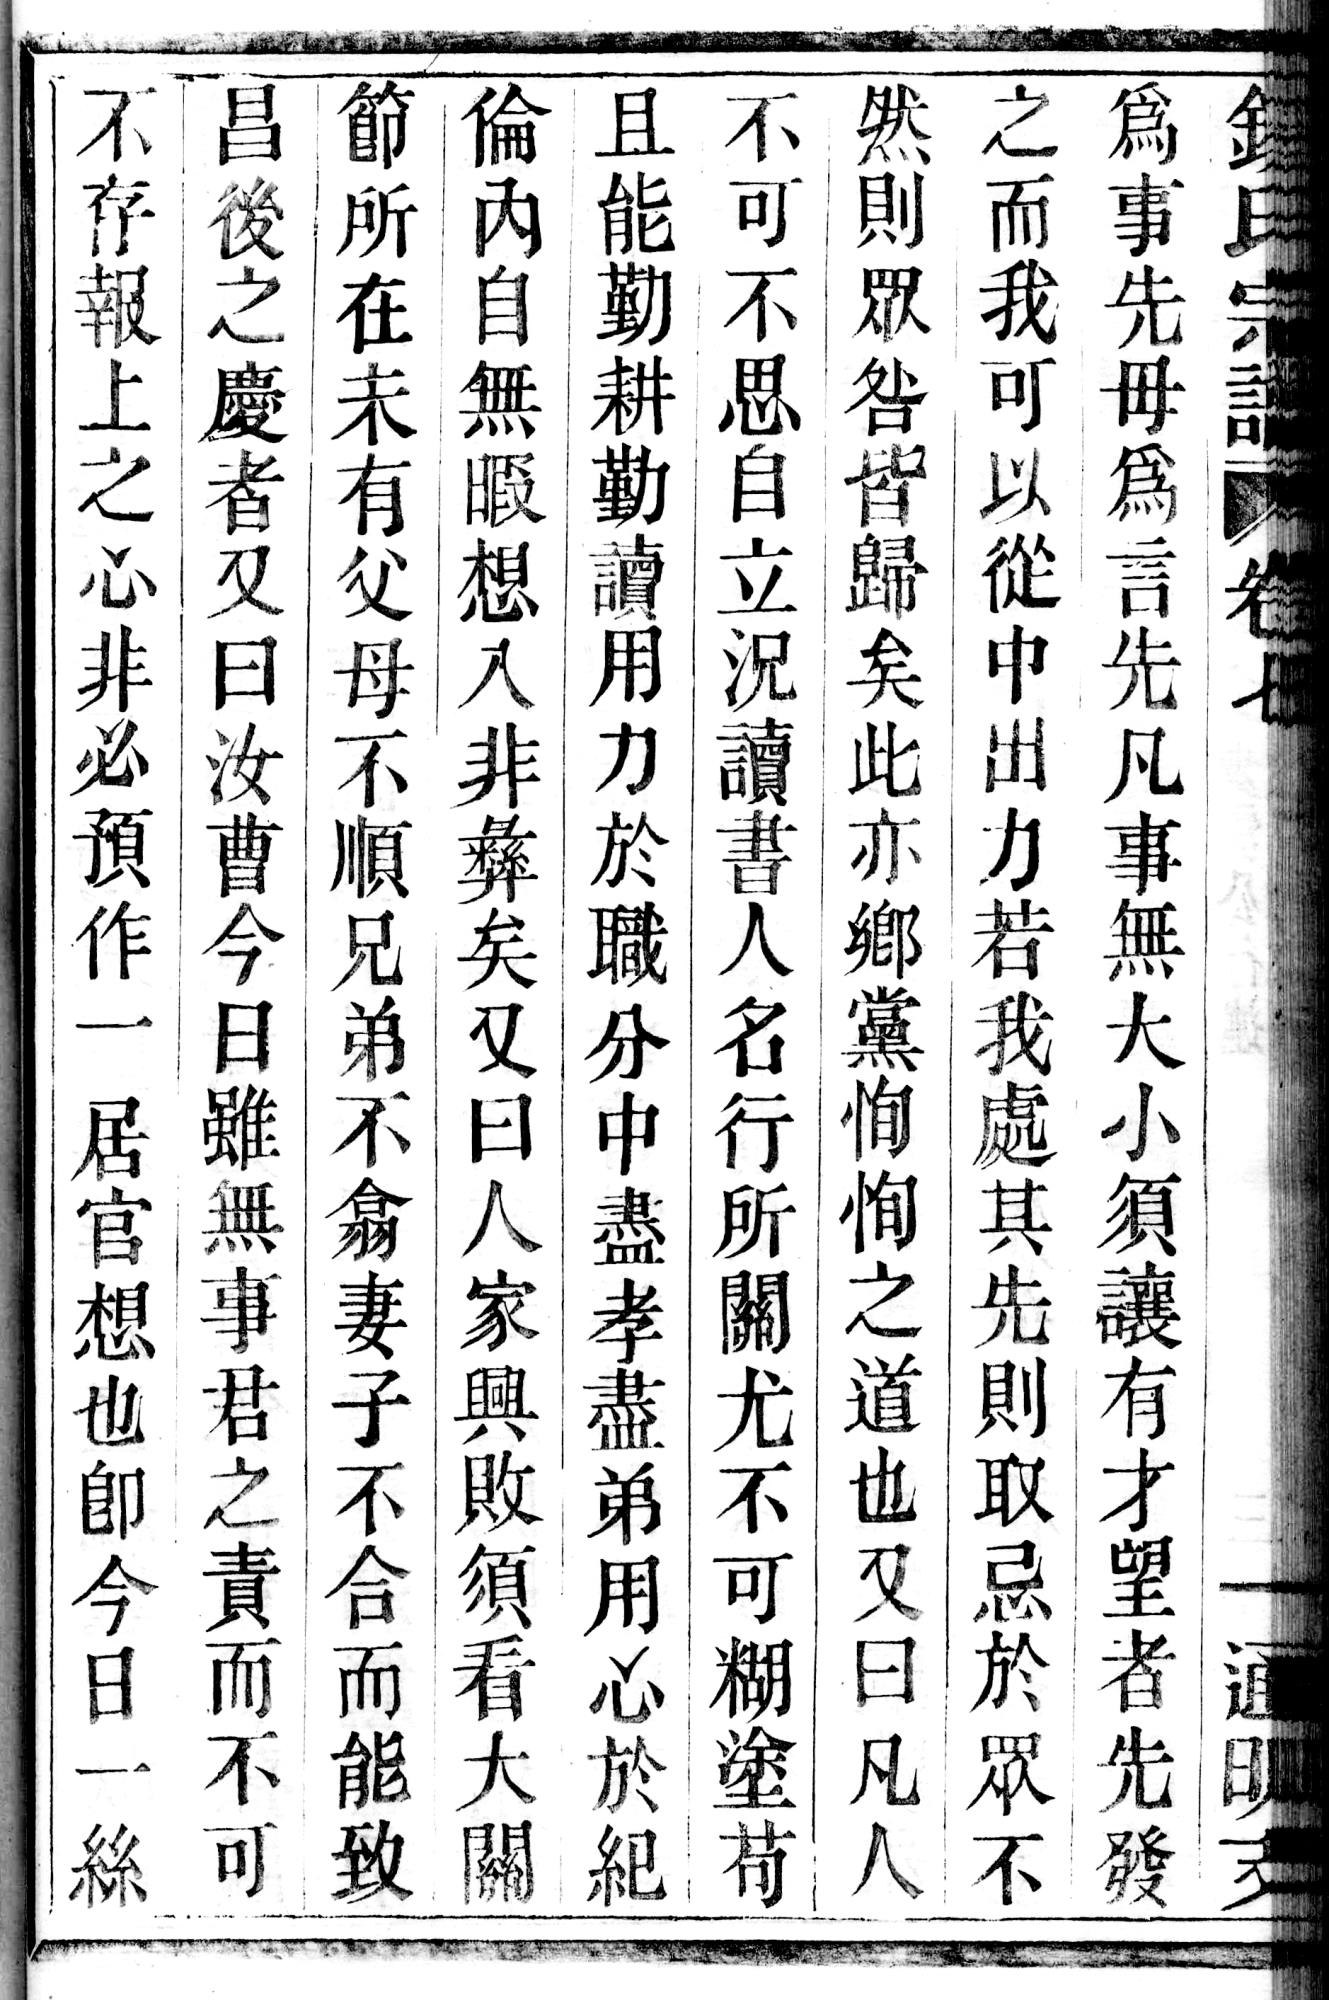 氏宗譜 卷七 通明
爲事先毋爲言先凡事無大小須讓有才望者先發
之而我可以從中出力若我處其先則取忌於眾不
然則眾咎皆歸矣此亦鄉黨恂恂之道也又曰凡人
不可不思自立況讀書人名行所關尤不可糊塗苟
且能勤耕勤讀用力於職分中盡孝盡弟用心於紀
倫內自無暇想入非彝矣又曰人家興敗須看大關
節所在未有父母不順兄弟不翕妻子不合而能致
昌後之慶者又曰汝曹今日雖無事君之責而不可
不存報上之心非必預作一居官想也卽今日一絲